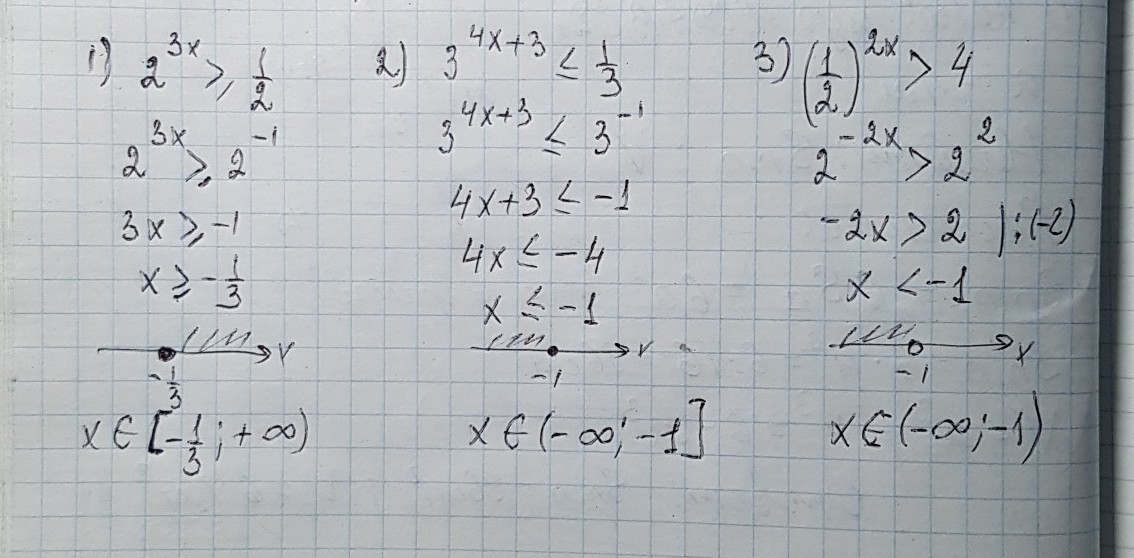 1) 2^{3x} ≥ 1/2
2^{3x} ≥ 2^{-1}
3x ≥ -1
x ≥ -1/3
-1/3 x
x ∈ [-1/3; +∞)
2) 3^{4x+3} ≤ 1/3
3^{4x+3} ≤ 3^{-1}
4x+3 ≤ -1
4x ≤ -4
x ≤ -1
-1 x
x ∈ (-∞; -1]
3) (1/2)^{2x} > 4
2^{-2x} > 2^{2}
-2x > 2 | :(-2)
x < -1
-1 x
x ∈ (-∞; -1)